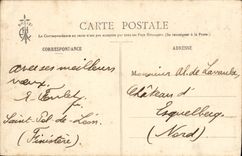 CARTE POSTALE
La Correspondance au recto n'est pas acceptée par tous les Pays Étrangers (Se renseigner à la Poste.)
CORRESPONDANCE
ADRESSE
avec ses meilleurs
vœux
Saint Pol de Léon
(Finistère)
Monsieur Al. de
Château d'
Esquelbecq
(Nord)